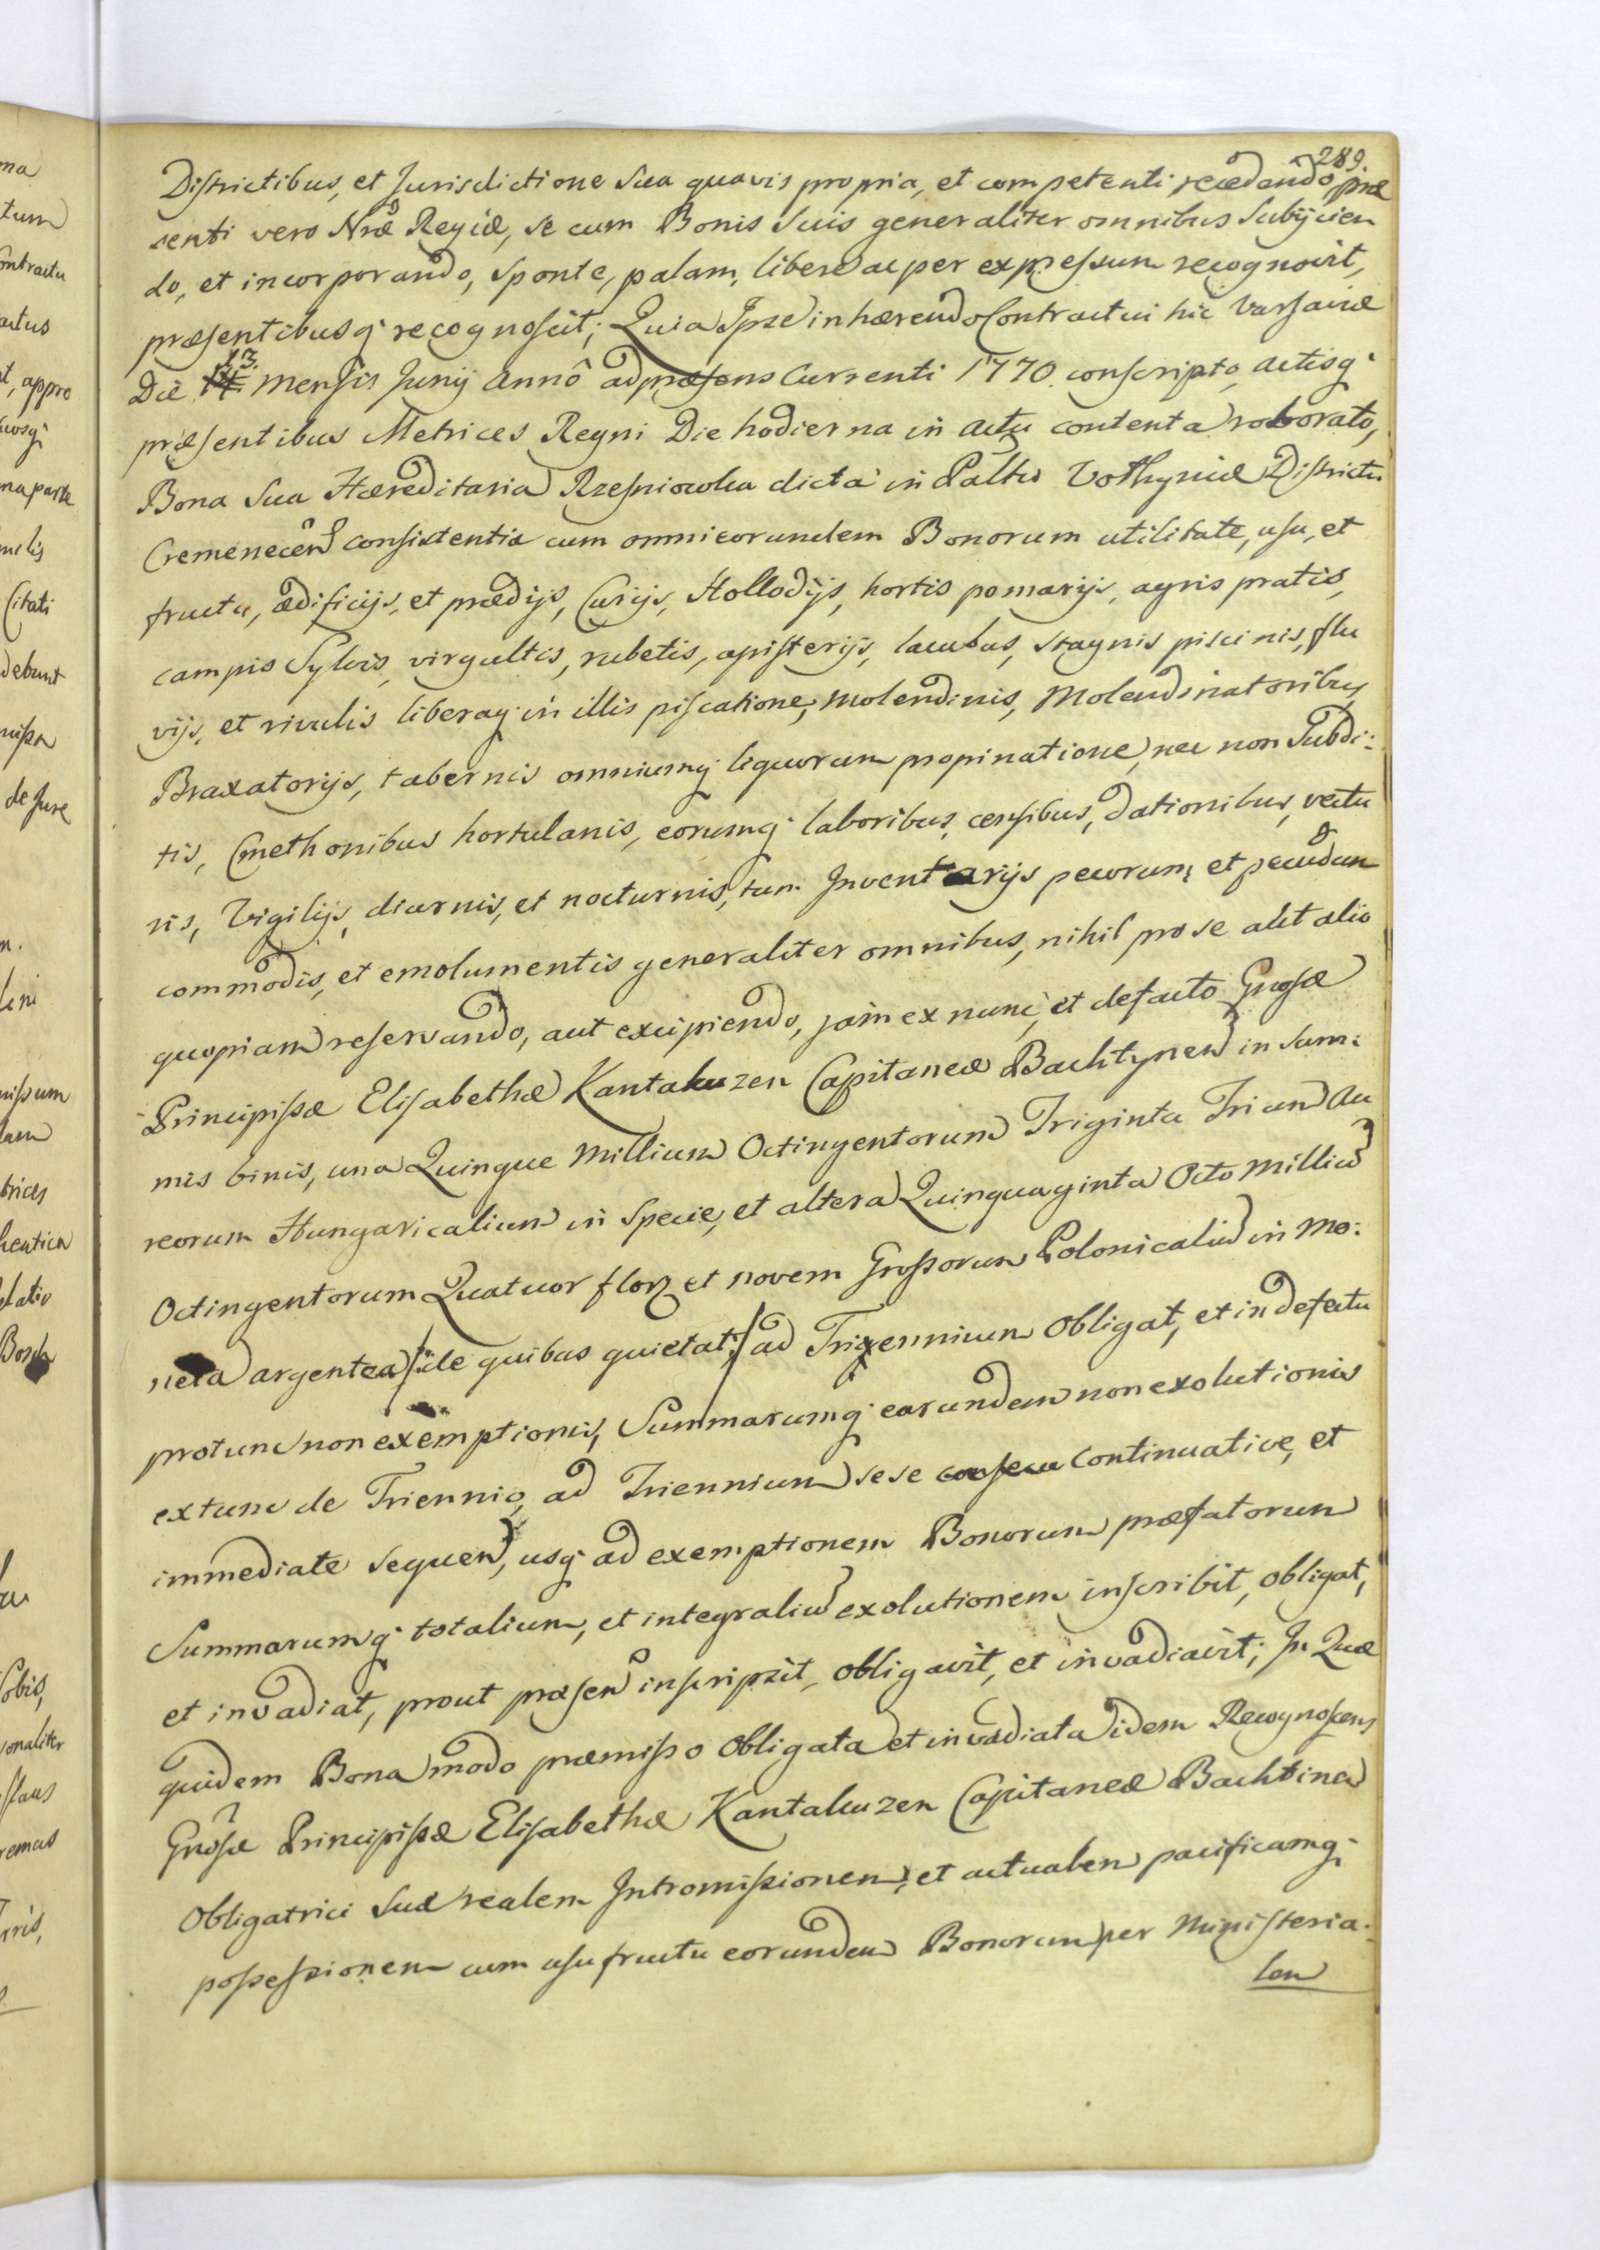 289.
Districtibus, et Jurisdictione sua quavis propria, et competenti recedendo præ
senti vero Nræ Regiæ, se cum Bonis suis generaliter omnibus subijcien
do, et incorporando, sponte, palam, libere ac per expressum recognovit,
præsentibusq; recognoscit; Quia Ipse inhærendo Contractui hic Varsaviæ
Die 13. mensis Junij Annô ad præsens Currenti 1770 conscripto, actisq;
præsentibus Metrices Regni Die hodierna in actu contenta roborato,
Bona sua Hæreditaria Rzesniowka dicta in Paltu Volhyniæ Districtu
Cremenecen consistentia cum omni eorumdem Bonorum utilitate, usu, et
fructu, ædificijs, et prædijs, Curijs, Hollodijs, hortis pomarijs, agris pratis,
campis Sylvis, virgultis, rubetis, apisterijs, lacubus, stagnis piscinis, flu
vijs, et rivulis liberaq; in illis piscatione, molendinis, Molendinatoribus,
Braxatorijs, tabernis omniumq; liquorum propinatione, nec non Subdi:
tis, Cmethonibus hortulanis, eorumq; laboribus, censibus, dationibus, vectu
ris, Vigilijs, diurnis, et nocturnis, tum Inventarijs pecorum, et pecudum
commodis, et emolumentis generaliter omnibus, nihil pro se aut alio
quopiam reservando, aut excipiendo, jam ex nunc, et de facto Gnosæ
Principissæ Elisabethæ Kantakuzen Capitaneæ Bachtynen in sum:
mis binis, una Quinque Millium Octingentorum Triginta Trium Au
reorum Hungaricalium in specie, et altera Quinquaginta Octo Milliu
Octingentorum Quatuor flor et novem Grossorum Polonicaliu in mo:
neta argentea /: de quibus quietat :/ ad Triennium Obligat, et in defectu
protunc non exemptionis, Summarumq; earundem non exolutionis
extunc de Triennio, ad Triennium sese continuative, et
immediate sequen, usq; ad exemptionem Bonorum præfatorum
Summarumq; totalium, et integraliu exolutionem inscribit, obligat,
et invadiat, prout præsen inscripsit, obligavit, et invadiavit; In Quæ
quidem Bona modo præmisso Obligata et invadiata idem Recognoscens
Gnosæ Principissæ Elisabethæ Kantakuzen Capitaneæ Bachtinen
Obligatrici suæ realem Intromissionem, et actualem pacificamq;
possessionem cum usufructu eorundem Bonorum per Ministeria
lem